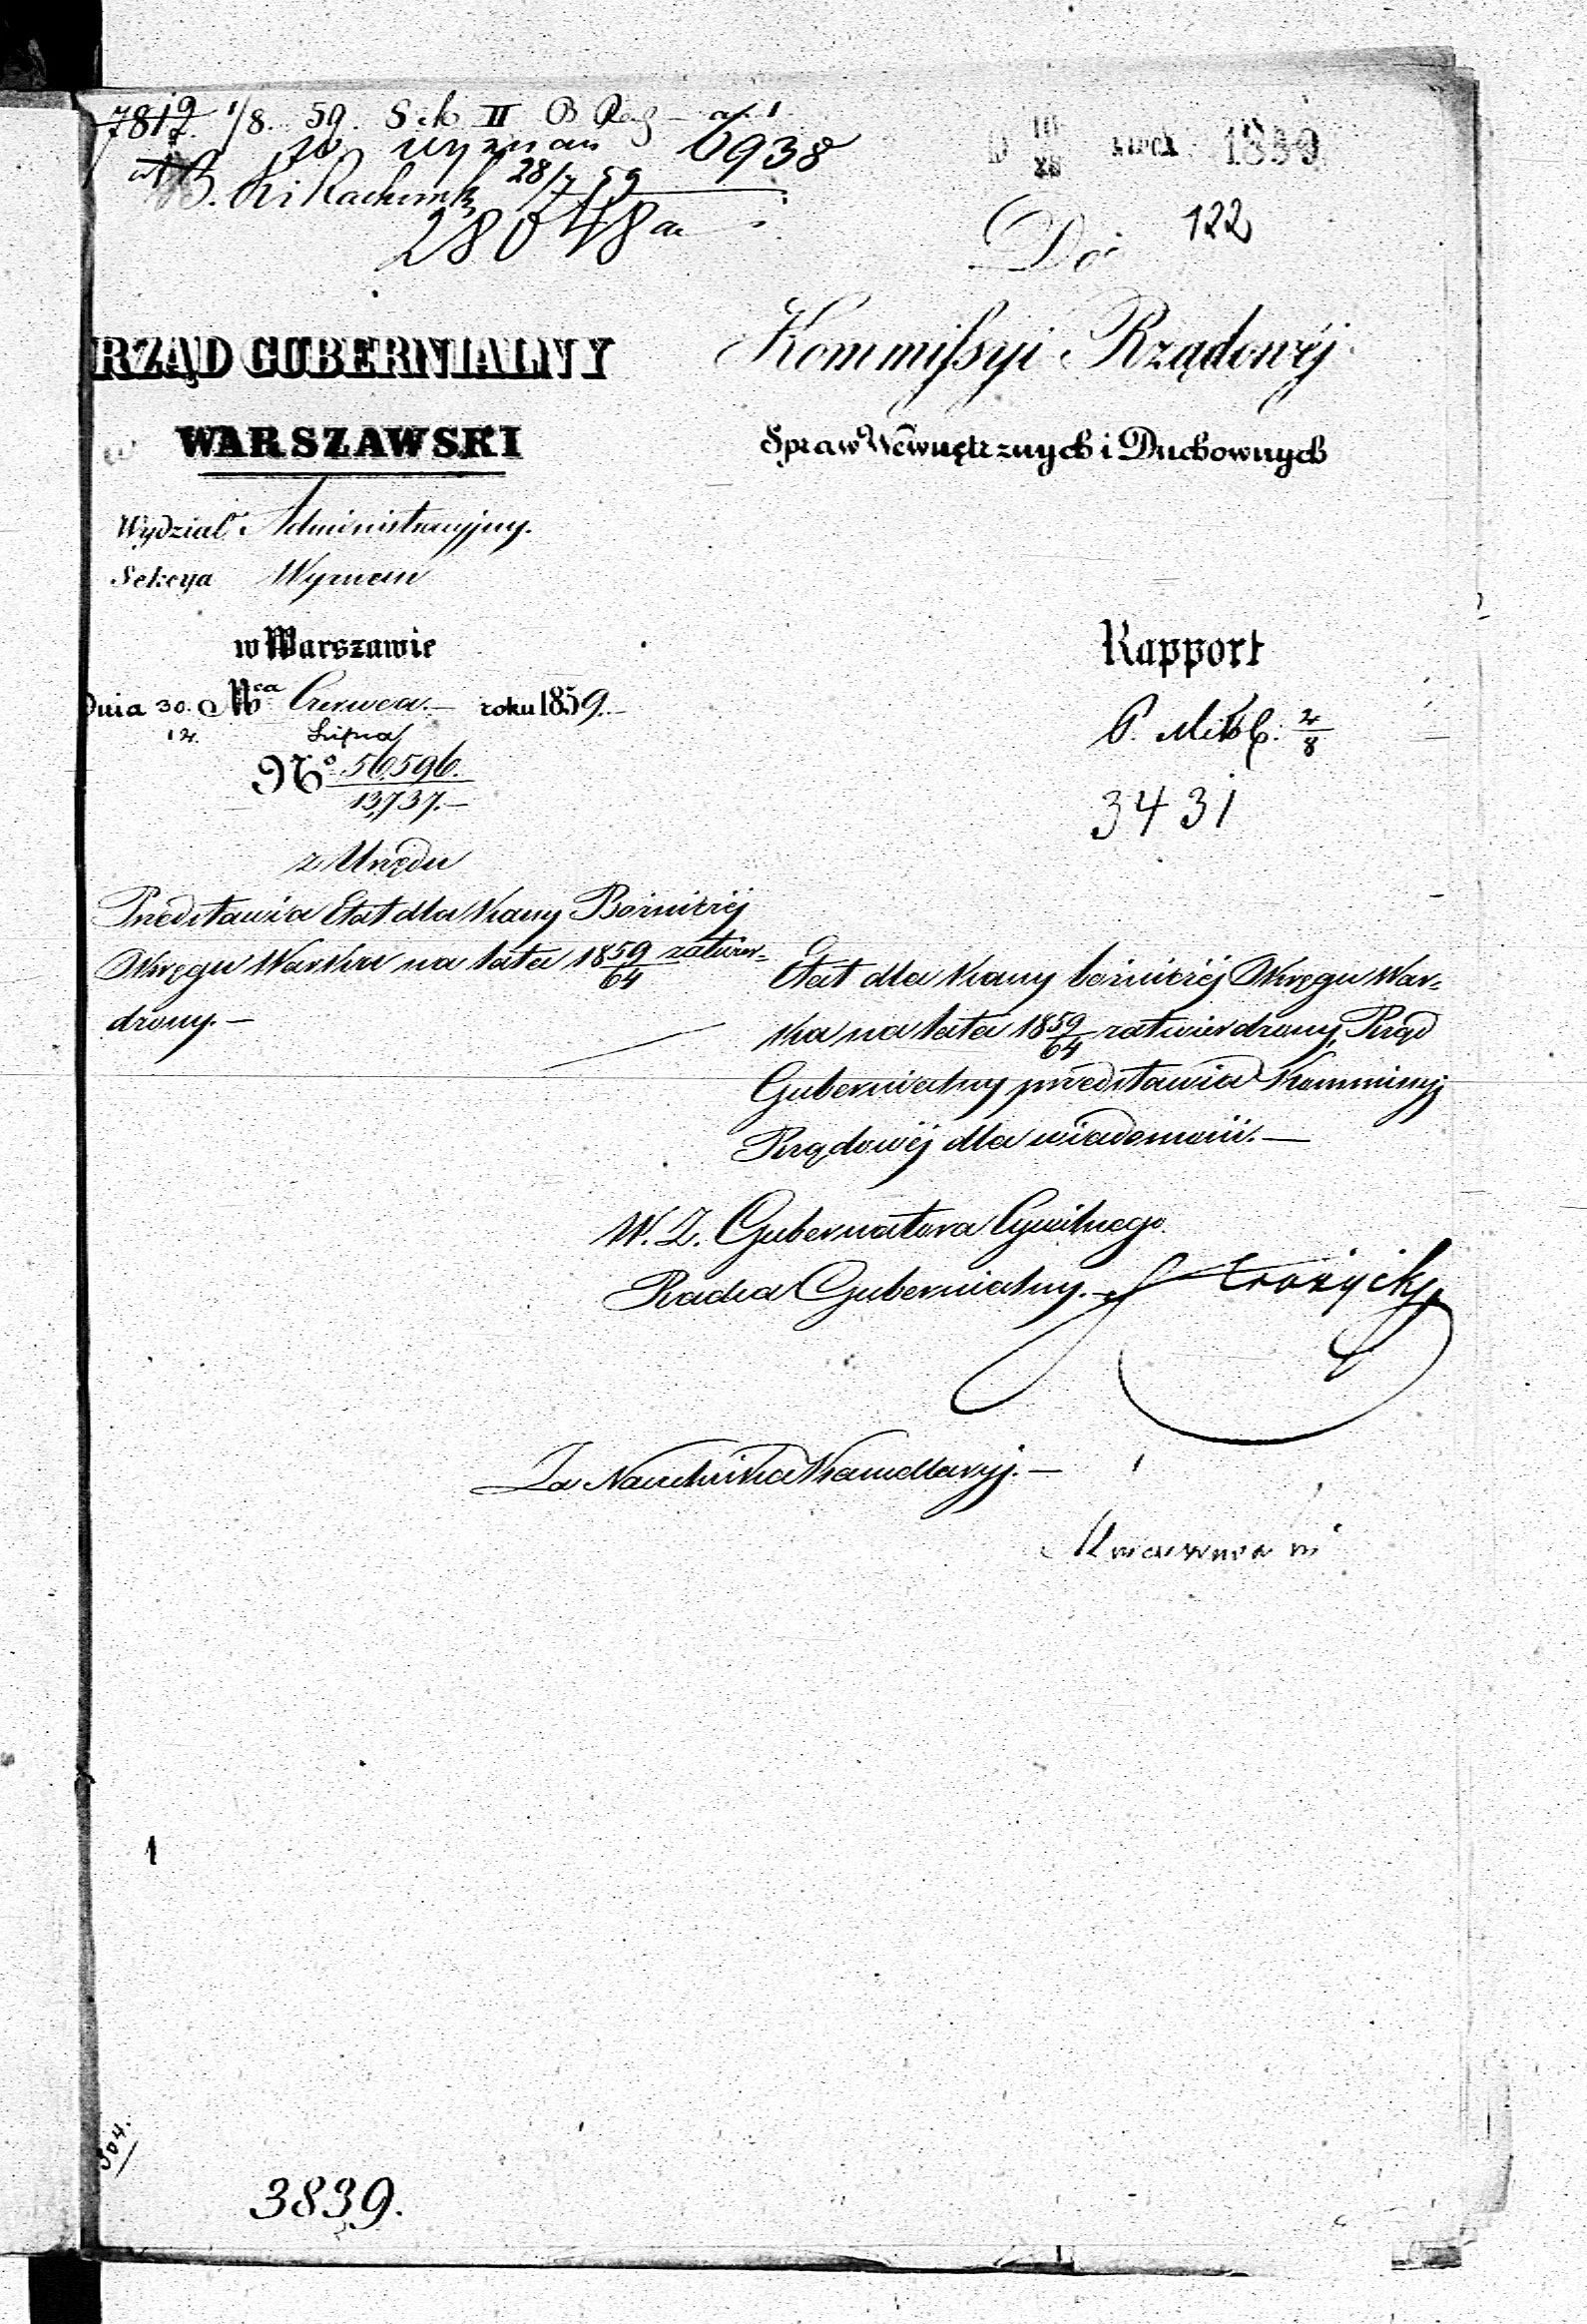 7819 1/8 59. Sek II
wyznań 6938
28/7 59
28048
D 16/28 LIPCA 1859
122
Do
Kommissyi Rządowéj
Spraw Wewnętrznych i Duchownych
RZĄD GUBERNIALNY
WARSZAWSKI
Wydział Administracyjny.
Sekcya Wyznań
w Warszawie
Dnia 30. Mca Czerwca.— roku 1859.—
12. Lipca
No 56,596.
13,737.—
z Urzędu
Przedstawia Etat dla Kassy Bożniczéj
Okręgu Warka na lata 1859/64 zatwier=
dzony.—
Rapport
2/8
3431
Etat dla Kassy bożniczéj Okręgu War=
ka na lata 1859/64 zatwierdzony, Rząd
Gubernialny przedstawia Kommissyj
Rządowéj dla wiadomości.—
W. Z. Gubernatora Cywilnego.
Radca Gubernialny.—
Za Naczelnika Kancellaryj.—
1
304.
3839.